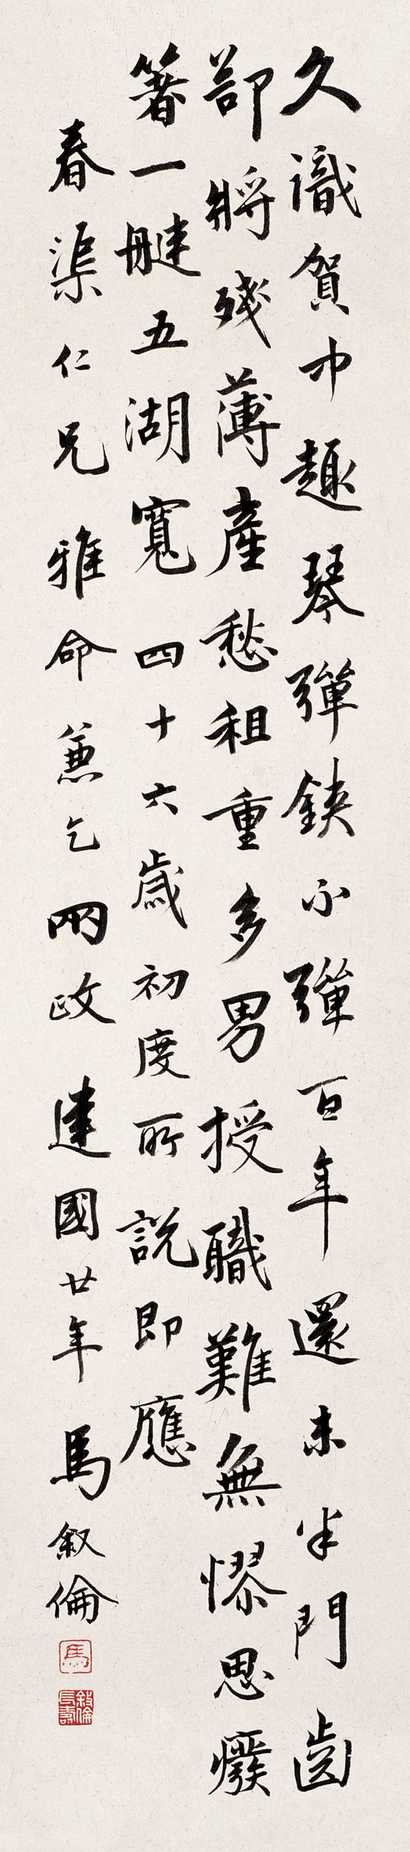 久識賀中趣琴彈鋏不彈百年還未半門齒
郤將殘薄產愁租重多男授職難無憀思癈
箸一艇五湖寬四十六歲初度所說即應
春渠仁兄雅命兼乞兩政建國廿年馬叙倫
馬